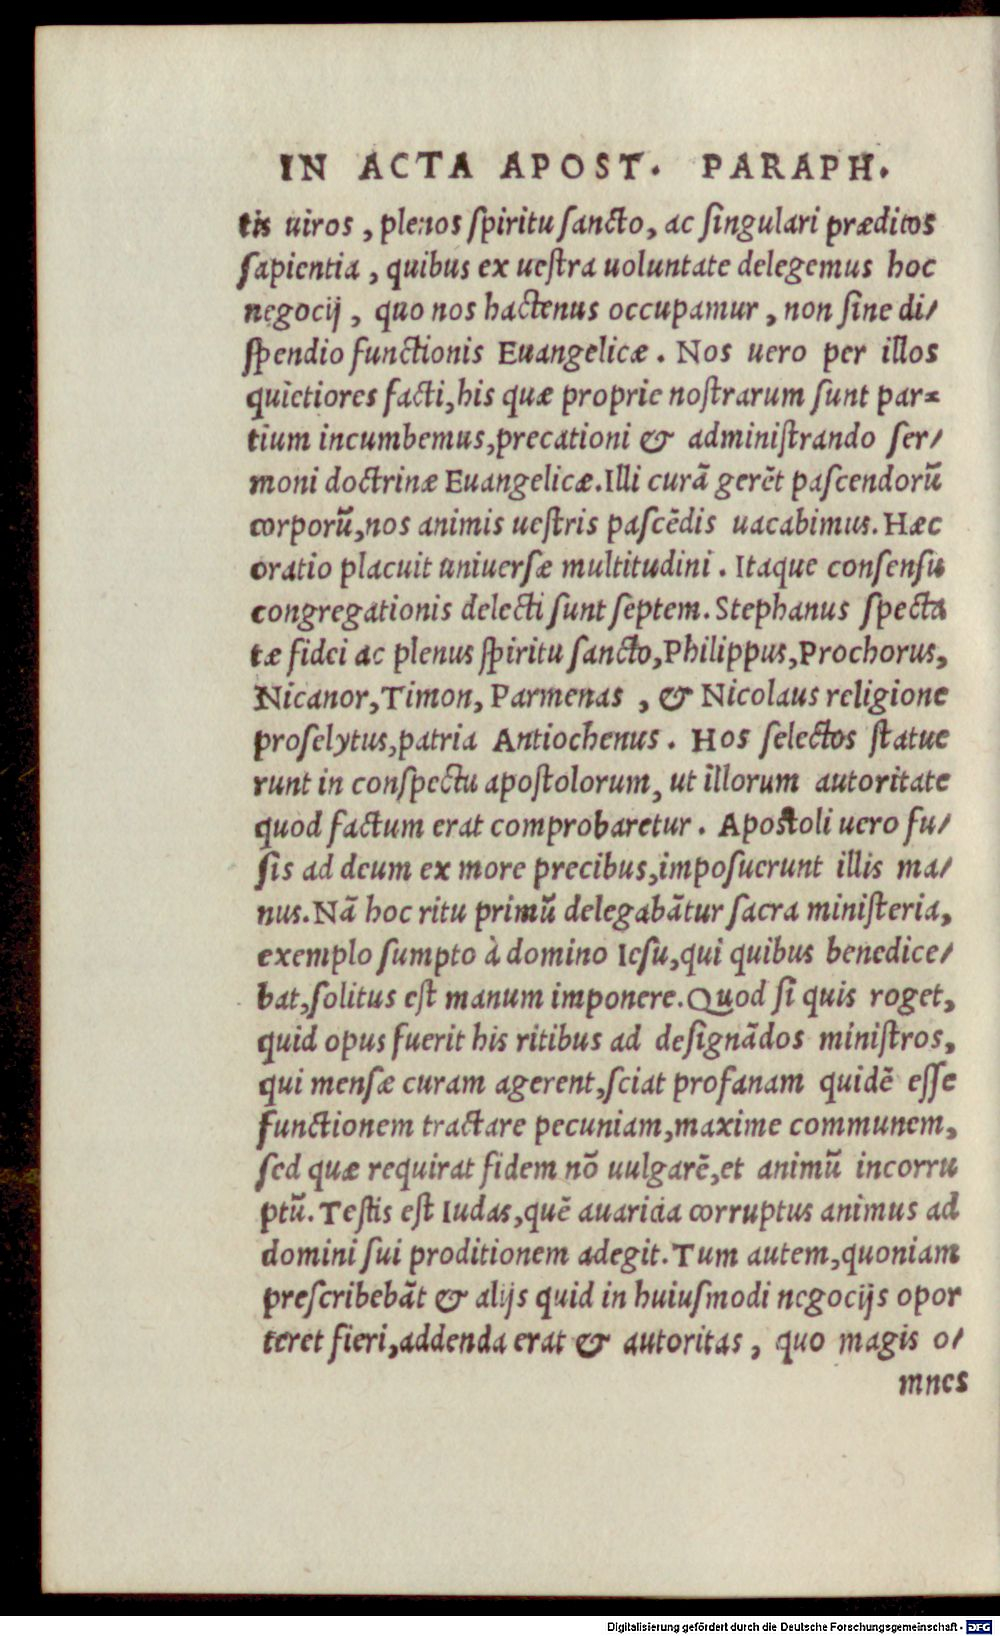 IN ACTA APOST. PARAPH.
tis uiros , plenos ſpiritu ſancto, ac ſingulari præditos
ſapientia , quibus ex ueſtra uoluntate delegemus hoc
negocij , quo nos hactenus occupamur , non ſine di/
ſpendio functionis Euangelicæ . Nos uero per illos
quietiores facti,his quæ proprie noſtrarum ſunt par=
tium incumbemus,precationi & adminiſtrando ſer/
moni doctrinæ Euangelicæ.Illi curã gerẽt paſcendorũ
corporũ,nos animis ueſtris paſcẽdis uacabimus. Hæc
oratio placuit uniuerſæ multitudini . Itaque conſenſu
congregationis delecti ſunt ſeptem. Stephanus ſpecta
tæ fidei ac plenus ſpiritu ſancto,Philippus,Prochorus,
Nicanor,Timon, Parmenas , & Nicolaus religione
proſelytus,patria Antiochenus . Hos ſelectos ſtatue
runt in conſpectu apoſtolorum, ut illorum autoritate
quod factum erat comprobaretur . Apoſtoli uero fu/
ſis ad deum ex more precibus,impoſuerunt illis ma/
nus.Nã hoc ritu primũ delegabãtur ſacra miniſteria,
exemplo ſumpto à domino Ieſu,qui quibus benedice/
bat,ſolitus eſt manum imponere.Quod ſi quis roget,
quid opus fuerit his ritibus ad deſignãdos miniſtros,
qui menſæ curam agerent,ſciat profanam quidẽ eſſe
functionem tractare pecuniam,maxime communem,
ſed quæ requirat fidem nõ uulgarẽ,et animũ incorru
ptũ. Teſtis eſt Iudas,quẽ auaricia corruptus animus ad
domini ſui proditionem adegit. Tum autem,quoniam
preſcribebãt & alijs quid in huiuſmodi negocijs opor
teret fieri,addenda erat & autoritas , quo magis o/
mnes
Digitalisierung gefördert durch die Deutsche Forschungsgemeinschaft - DFG